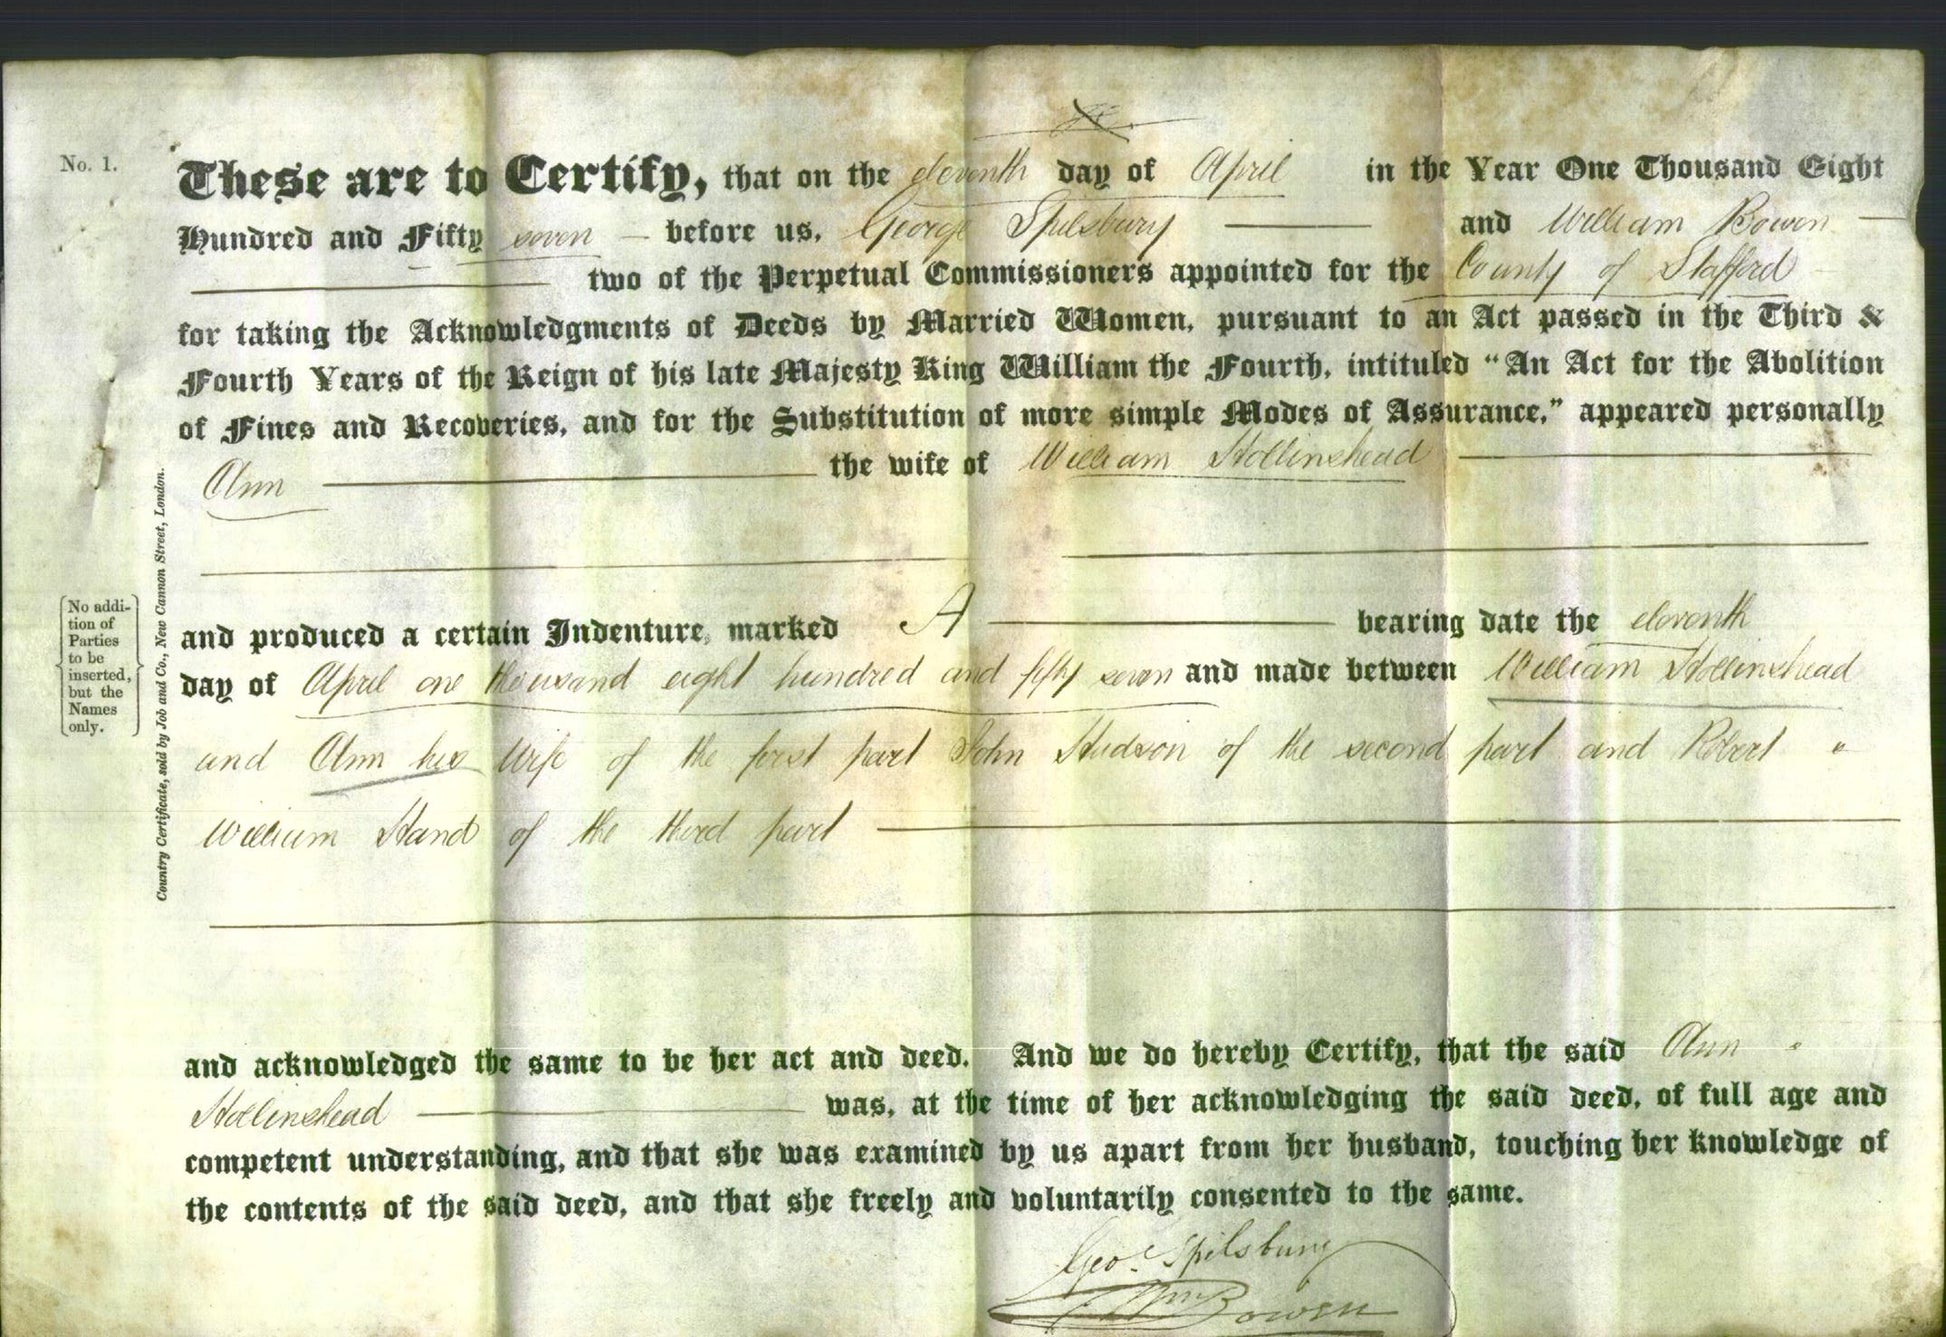 No. 1.
These are to Certify, that on the eleventh day of April in the Year One Thousand Eight
Hundred and Fifty seven before us, George Spilsbury and William Bowen
two of the Perpetual Commissioners appointed for the County of Stafford
for taking the Acknowledgments of Deeds by Married Women, pursuant to an Act passed in the Third &
Fourth Years of the Reign of his late Majesty King William the Fourth, intituled "An Act for the Abolition
of Fines and Recoveries, and for the Substitution of more simple Modes of Assurance," appeared personally
Ann the wife of William Hollinshead
and produced a certain Indenture, marked A bearing date the eleventh
day of April one thousand eight hundred and fifty seven and made between William Hollinshead
and Ann his Wife of the first part John Hudson of the second part and Robert
William Hand of the third part
and acknowledged the same to be her act and deed. And we do hereby Certify, that the said Ann
Hollinshead was, at the time of her acknowledging the said deed, of full age and
competent understanding, and that she was examined by us apart from her husband, touching her knowledge of
the contents of the said deed, and that she freely and voluntarily consented to the same.
Geo. Spilsbury
Wm Bowen
No addi-
tion of
Parties
to be
inserted,
but the
Names
only.
Country Certificate, sold by Job and Co., New Cannon Street, London.